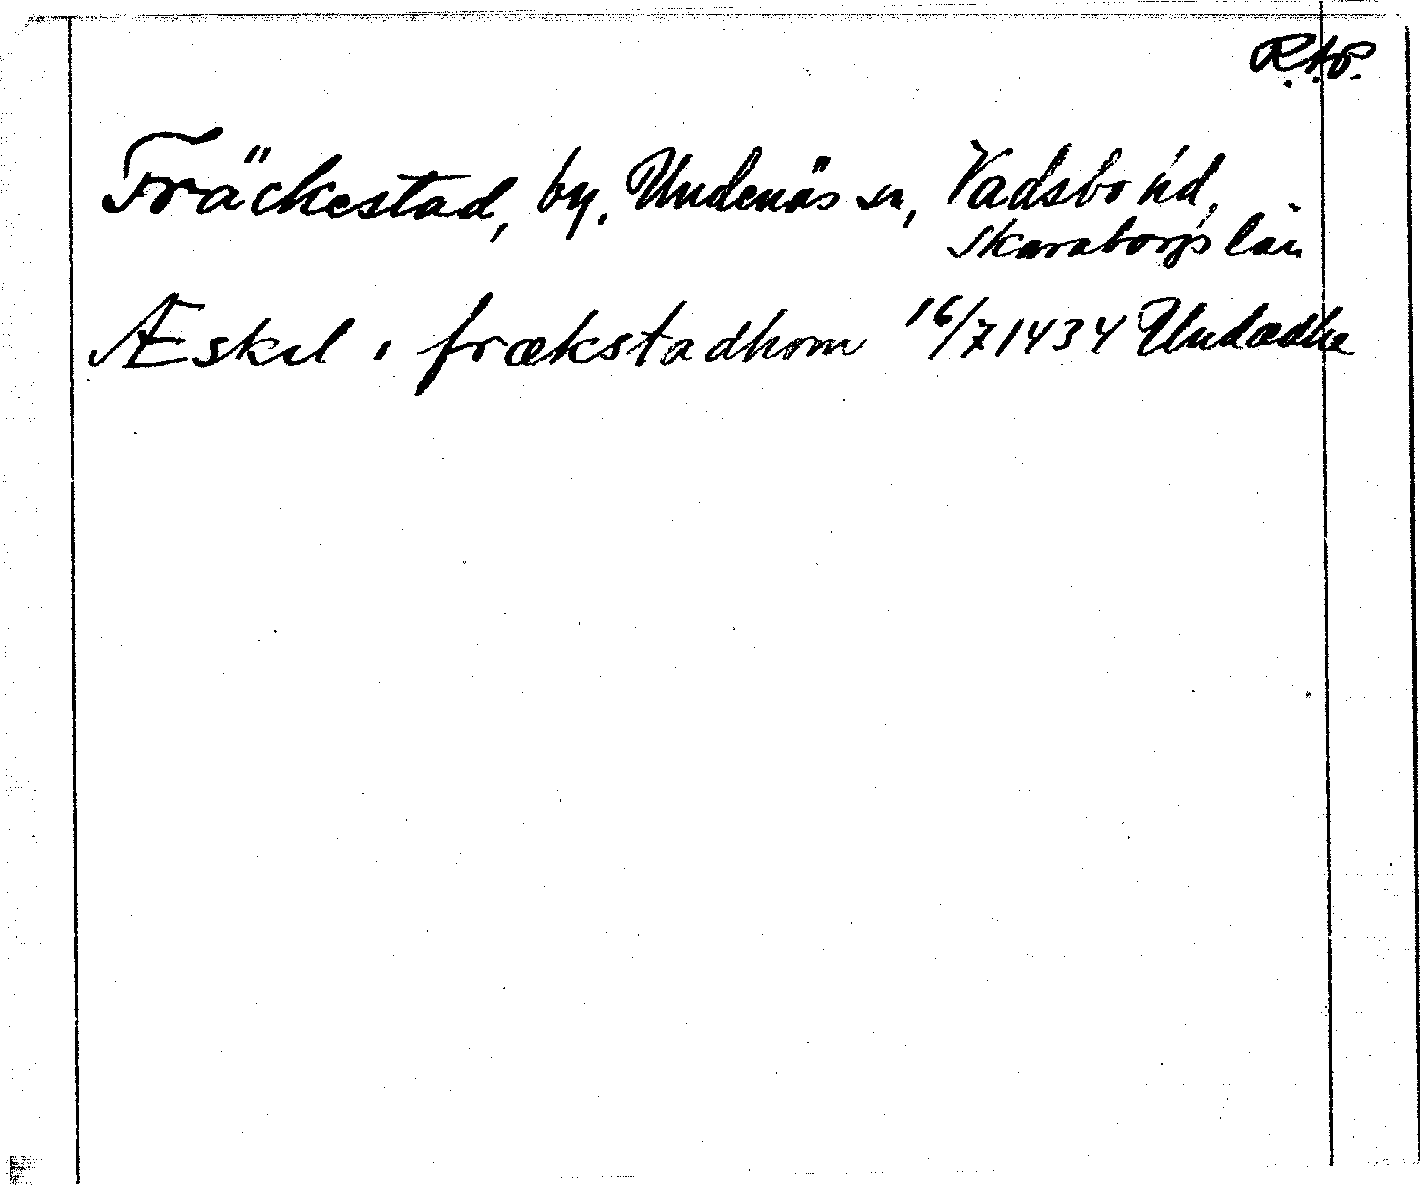 R.A.P.
Fräckestad, by. Undenäs sn, Vadsbo hd,
Skaraborgs län
Æskel i frækstadhom 16/7 1434 Undædhe